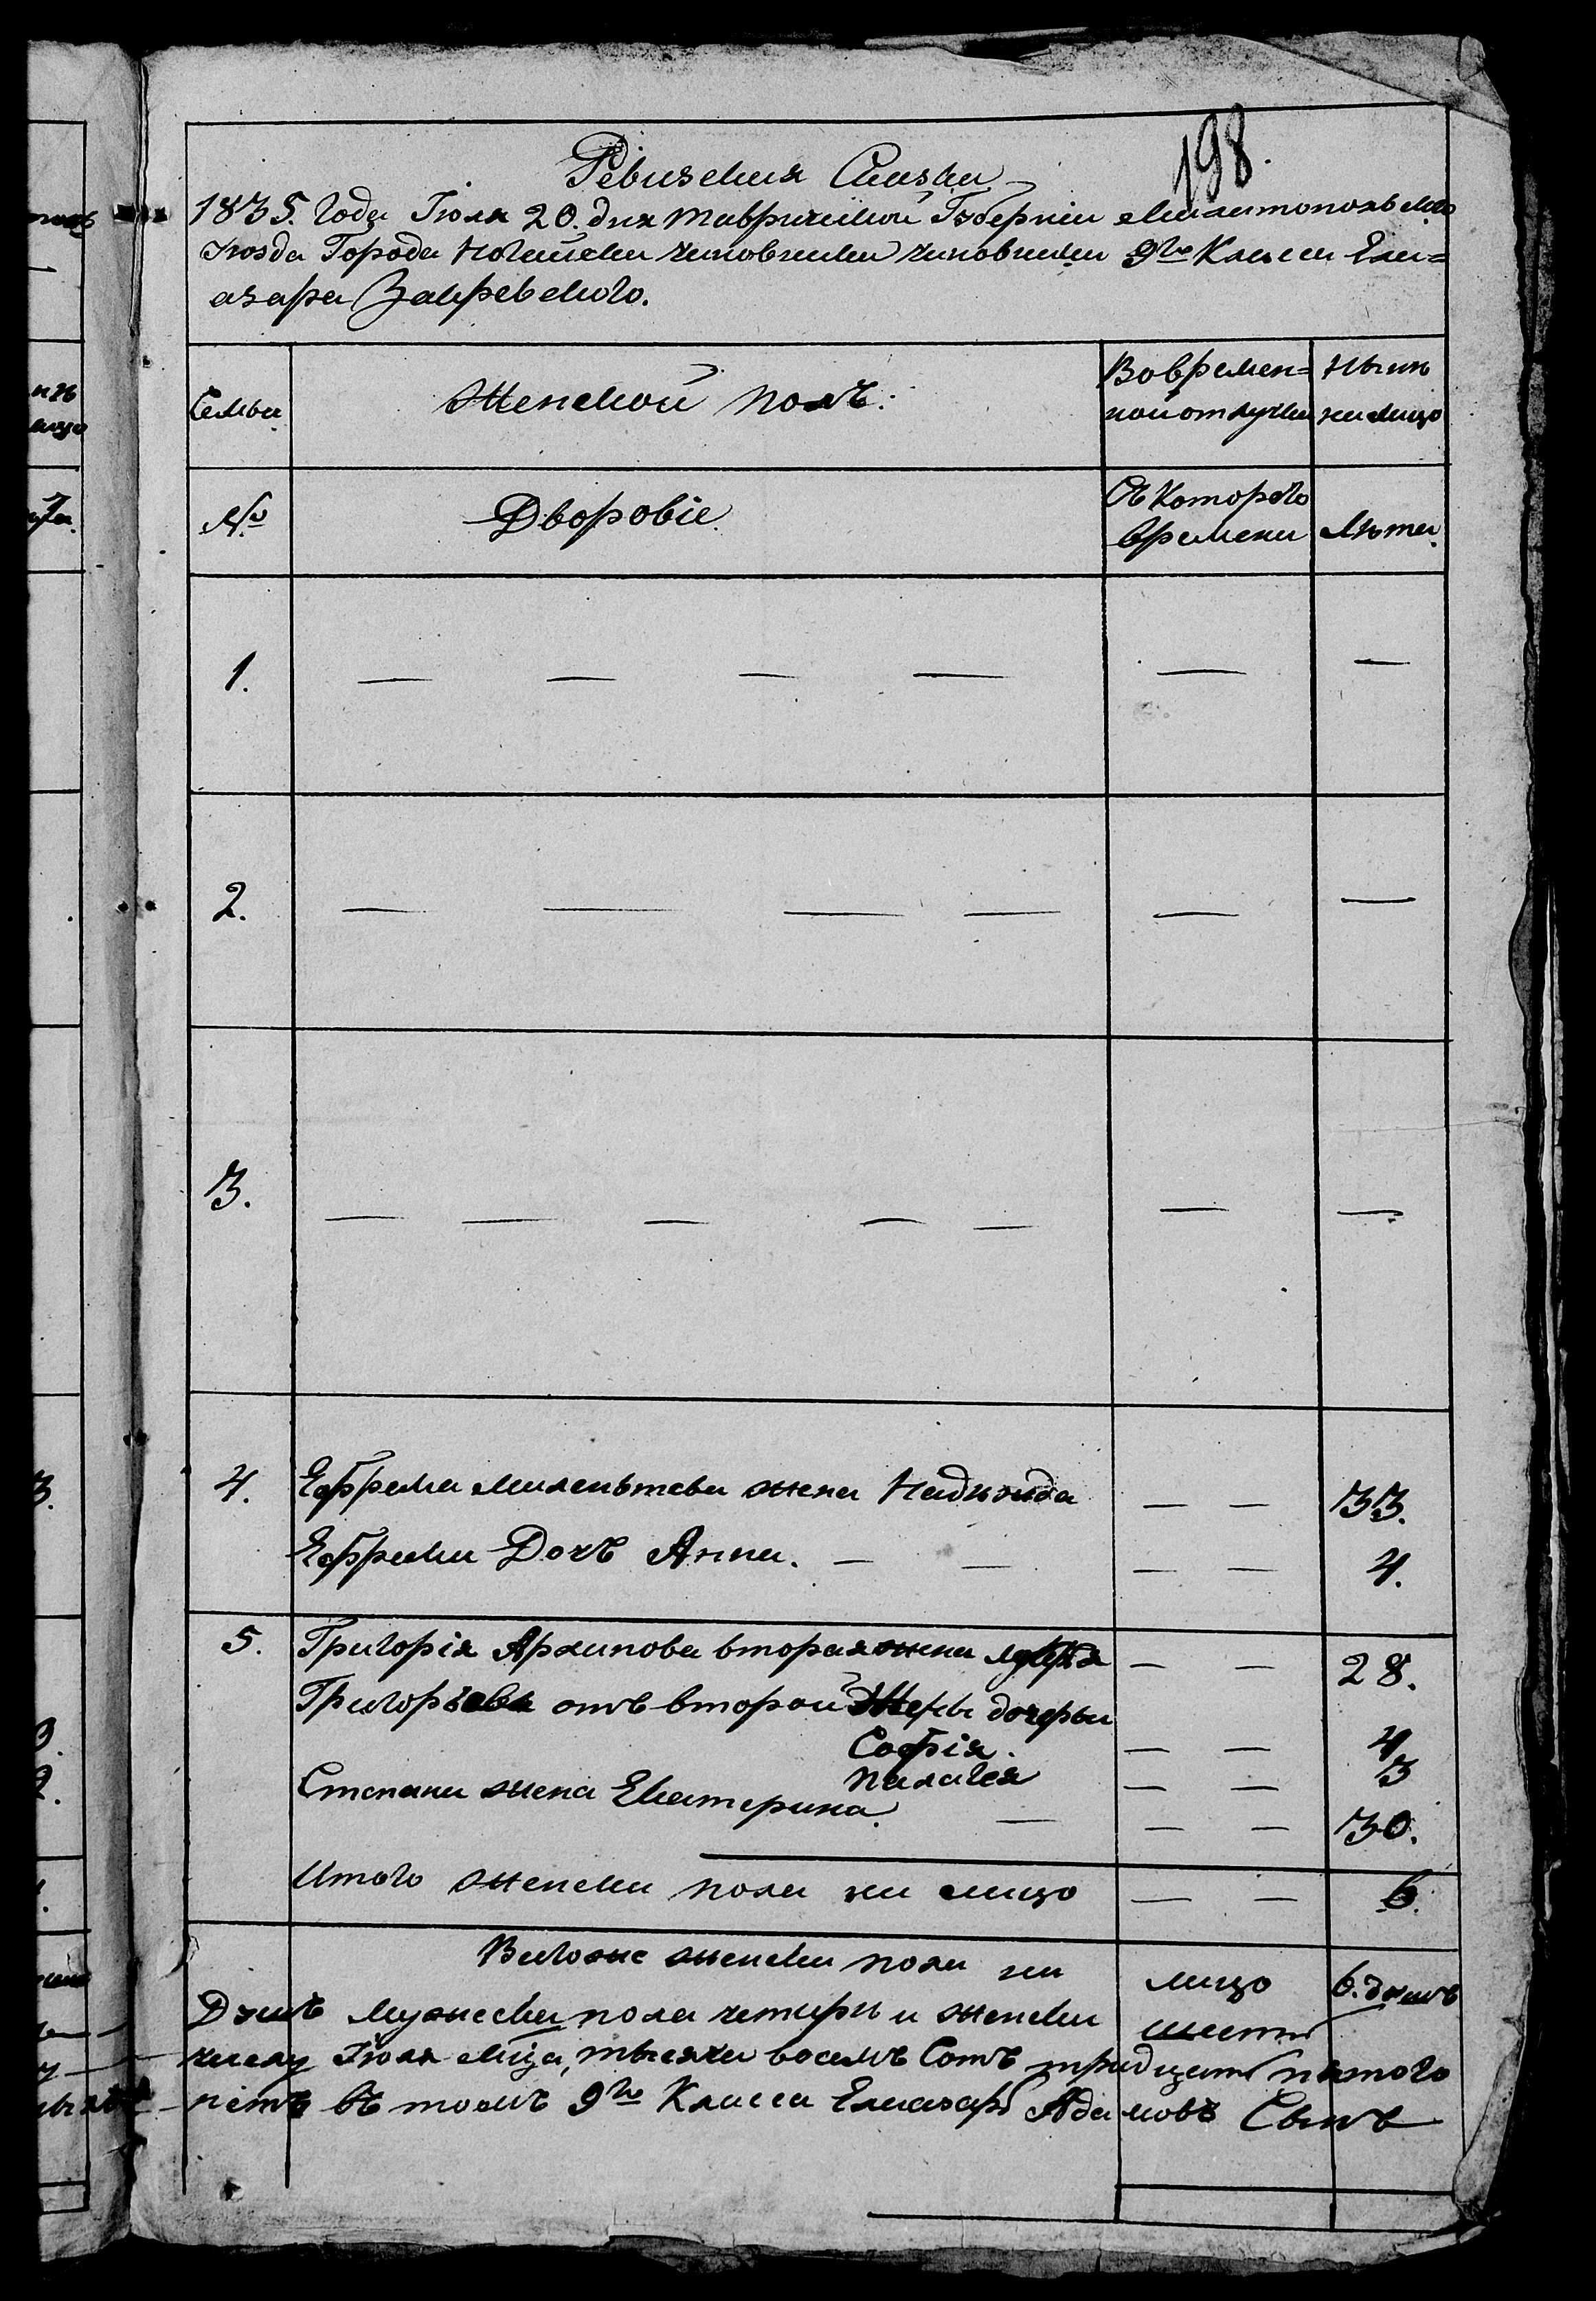 198.
Ревизская Сказка
1835. Года Июля 20. дня Таврической Губерніи Мелитопольского
уюзда Города Ногайска чиновника чиновника 9го Класса Ели=
азара Закревского.
Семьи
Женской полъ:
Вовремен=
ной отлучки
Нынѣ
на лицо
№
Дворовіе
Съ Которого
времени
Лѣта.
1. — — — — — —
2. — — — — — —
3. — — — — — — —
4. Ефрема Милентева жена Надѣжда — — 33.
Ефрема Дочь Анна. — — — — 4.
5. Григорія Архипова вторая жена — — 28.
Григорьева отъ второй Жены дочери
Софія. — — 4
Палагея — — 3
Степана жена Екатерина. — — — 30.
Итого женска пола на лицо — — 6.
Витоге женска пола на лицо 6. душъ
Душъ мужеска пола четыри и женска шесть
числу Июля мца, тысяча восемъ Сотъ тридцать пятого
нѣтъ въ томъ 9го Класса Елиазаръ Адамовъ Сынъ